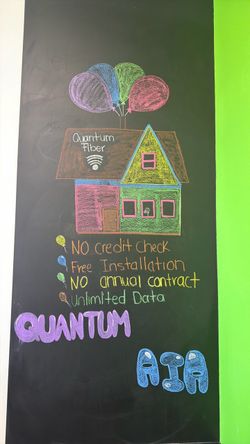 Quantum
Fiber
NO Credit Check
Free Installation
NO annual contract
Unlimited Data
QUANTUM
AIA